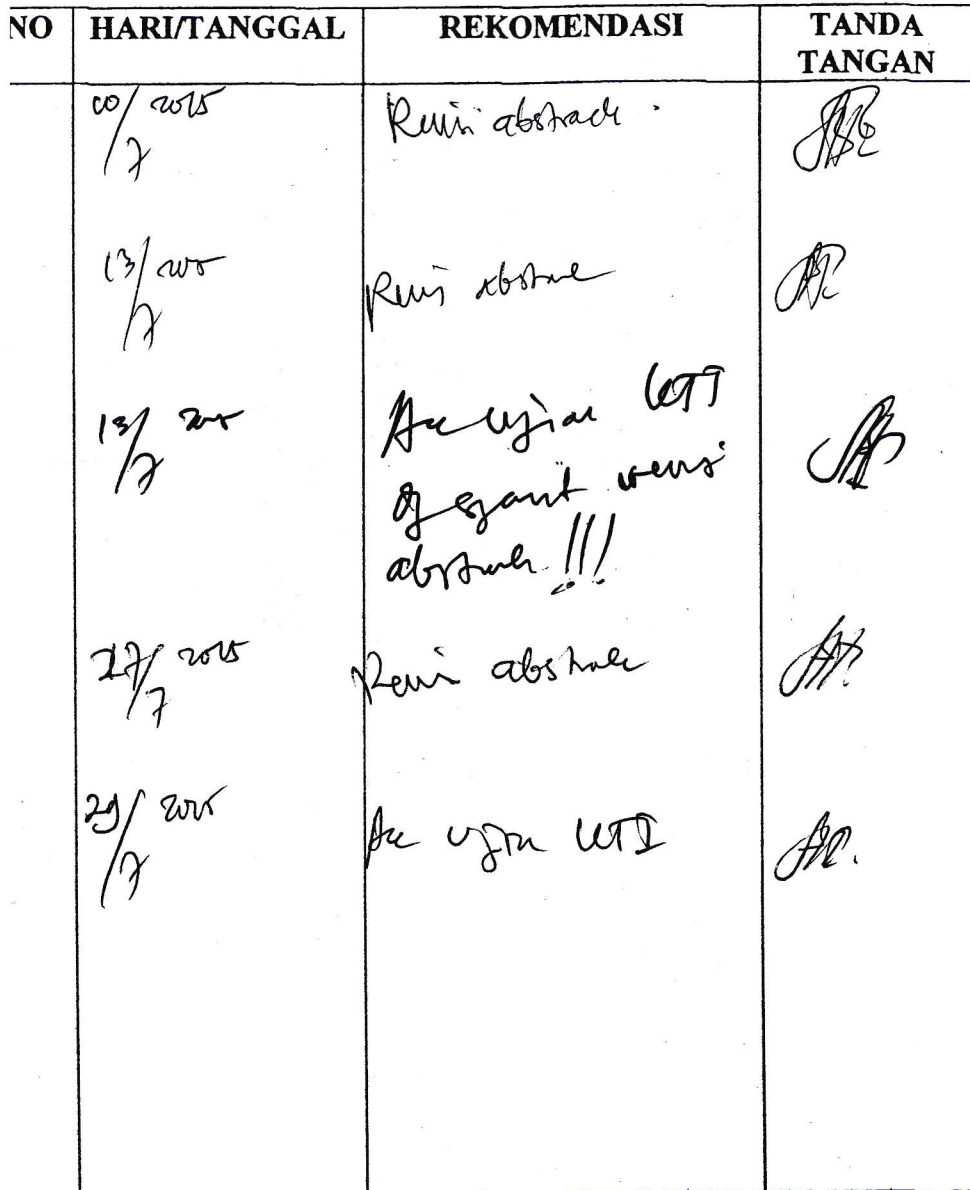 NO HARI/TANGGAL REKOMENDASI TANDA TANGAN
10/7 2015 Revisi abstrack
13/7 2015 Revisi abstrac
13/7 2015 Acc Ujian KTI
revisi
abstrack !!!
27/7 2015 Revisi abstrak
29/7 2015 Acc Ujian KTI